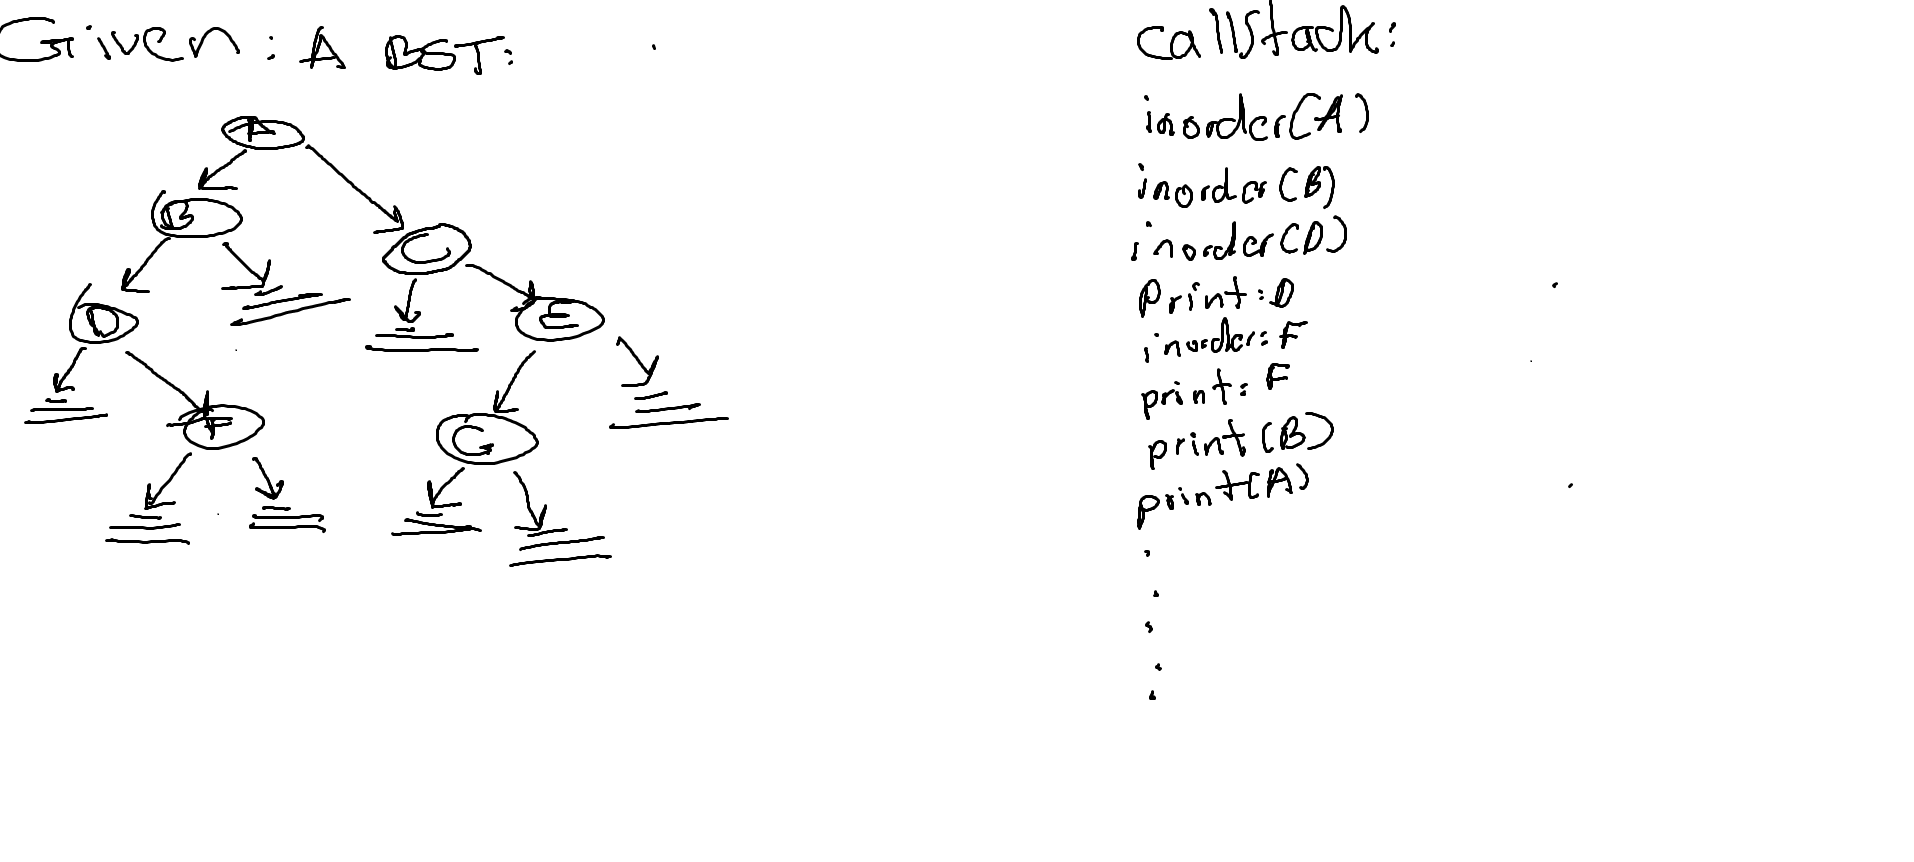 Given: A BST:
A
B
C
D
E
F
G
Callstack:
inorder(A)
inorder(B)
inorder(D)
Print:D
inorder:F
print:F
print(B)
print(A)
.
.
.
.
.